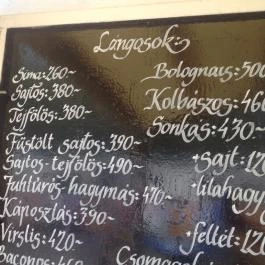 Lángosok:
Sima: 260~
Sajtos: 380~
Tejfölös: 380~
Füstölt sajtos: 390~
Sajtos-tejfölös: 490~
Juhtúrós-hagymás: 470~
Káposztás: 390~
Virslis: 420~
Baconos: 460
Bolognais: 500
Kolbászos: 460
Sonkás: 430~
+sajt: 120
+lilahagy
+feltét: 120
Csomagol